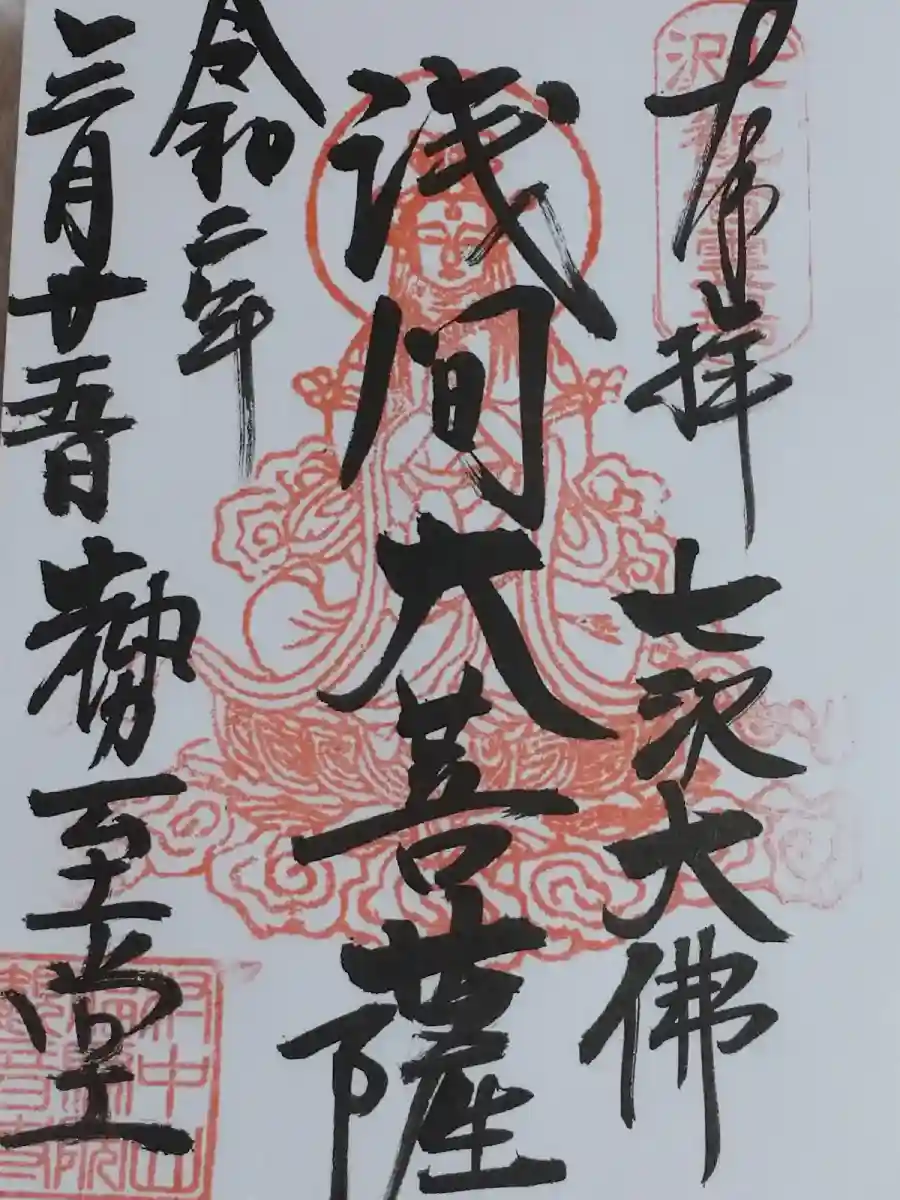 奉拝 七沢大佛
浅間大菩薩
令和二年
三月廿五日 勢至堂